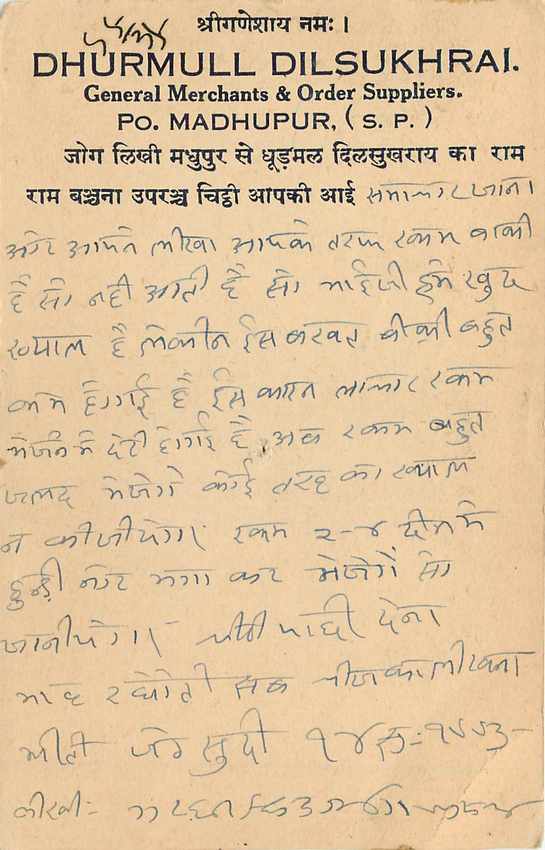 श्रीगणेशाय नमः ।
DHURMULL DILSUKHRAI.
General Merchants & Order Suppliers.
PO. MADHUPUR, ( S. P. )
जोग लिखी मधुपुर से धूड़मल दिलसुखराय का राम
राम बञ्चना उपरञ्च चिट्ठी आपकी आई समाचार जाना
और आपने लीखा आपके तरफ रकम बाकी
है सो नही आती है सो भाईजी हमे खुद
ख्याल है लेकीन ईस बखत बीकी बहुत
कम होगई है ईस कारन लाचार रकम
भेजने मे देरी होगई है अब रकम बहुत
जलद भेजेगे कोई तरह का ख्याल
न कीजीयेगा रकम २-४ दीन मे
हुन्डी नोट मगा कर भेजेगे सो
जानीयेगा चीठी पाछी देना
भाव सब चीज का लीखना
मीती जेठ सुदी १४